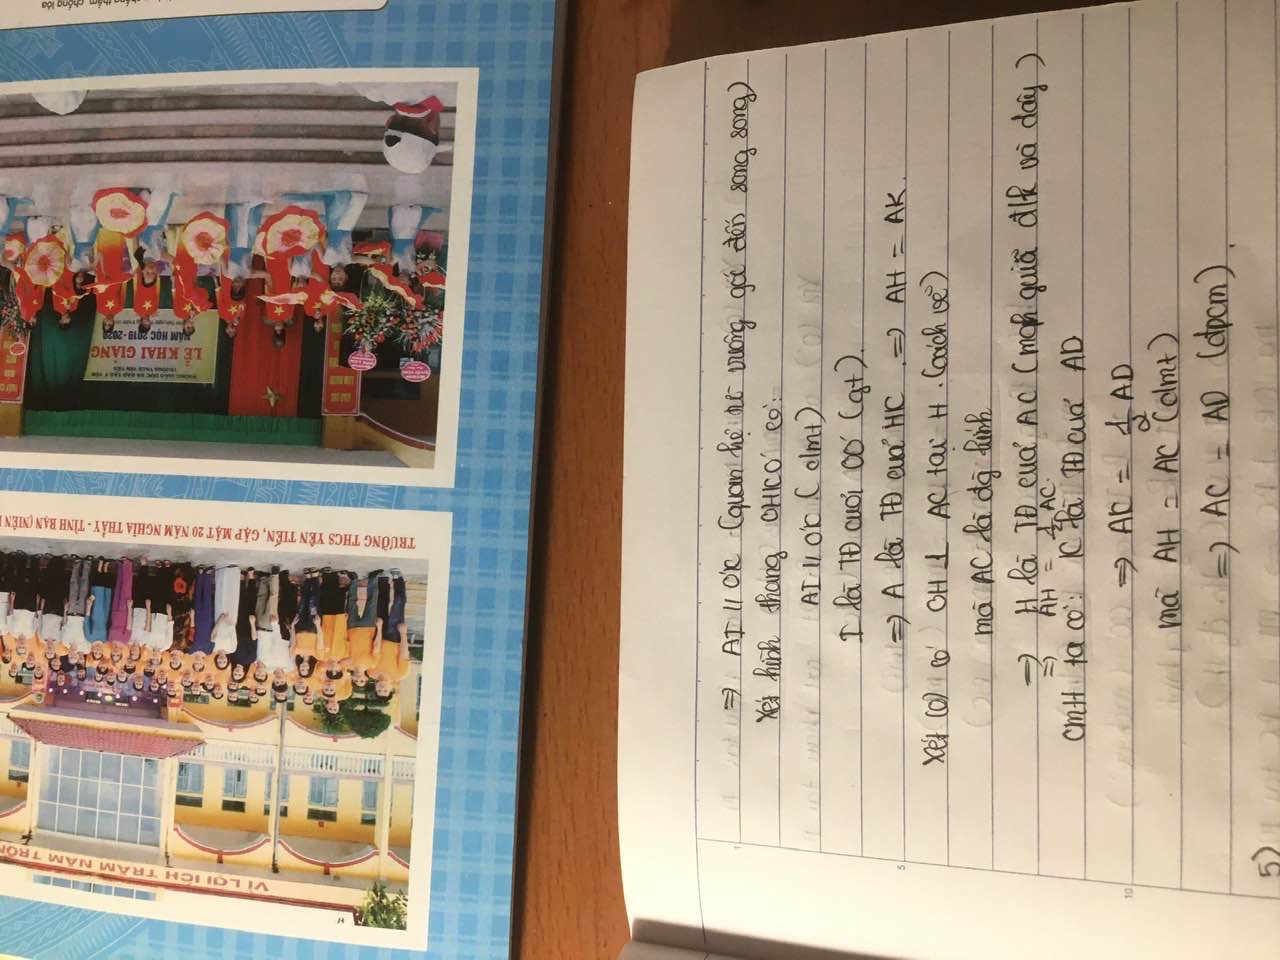 ⇒ AI // O'K (quan hệ từ vuông góc đến song song)
Xét hình thang OHKO' có:
AI // O'K (cmt)
I là TĐ của OO' (gt)
⇒ A là TĐ của HK ⇒ AH = AK.
Xét (O) có OH ⊥ AC tại H (cách vẽ)
mà AC là dây
⇒ H là TĐ của AC (mqh giữa đ/k và dây)
⇒ AH = 1/2 AC.
cmtt ta có: K là TĐ của AD
⇒ AK = 1/2 AD
mà AH = AK (cmt)
⇒ AC = AD (đpcm).
5)
1
5
10
chống thấm, chống lóa
LỄ KHAI GIẢNG
NĂM HỌC 2019 - 2020
TRƯỜNG THCS YÊN TIẾN, GẶP MẶT 20 NĂM NGHĨA THẦY - TÌNH BẠN (NIÊN
VÌ LỢI ÍCH TRĂM NĂM TRỒN